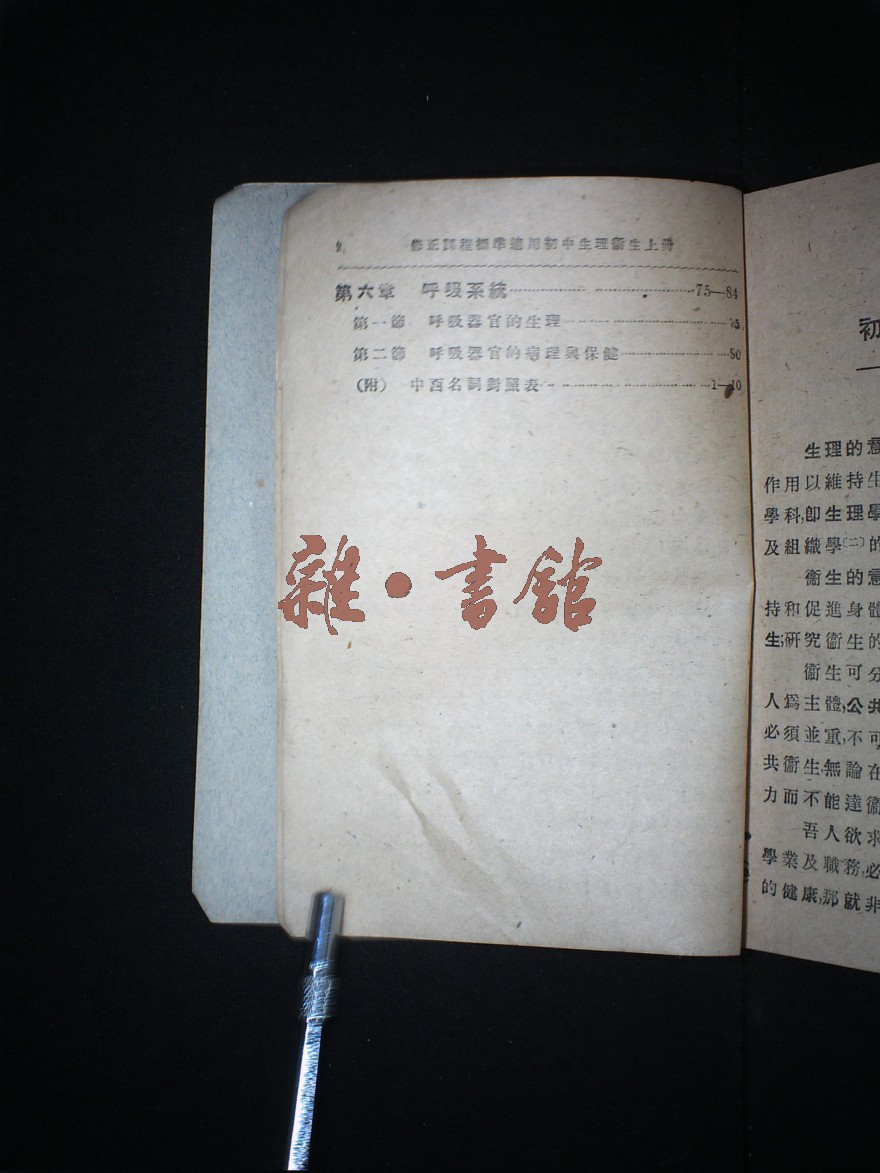 2 修正課程標準適用初中生理衞生上册
第六章 呼吸系統 75—84
第一節 呼吸器官的生理 75
第二節 呼吸器官的病理與保健 80
(附) 中西名詞對照表 1—10
雜·書館
初
生理的意
作用以維持生
學科,即生理學
及組織學(二)的
衞生的意
持和促進身體
生,研究衞生的
衞生可分
人爲主體,公共
必須並重,不可
共衞生,無論在
力而不能達衞
吾人欲求
學業及職務,必
的健康,那就非